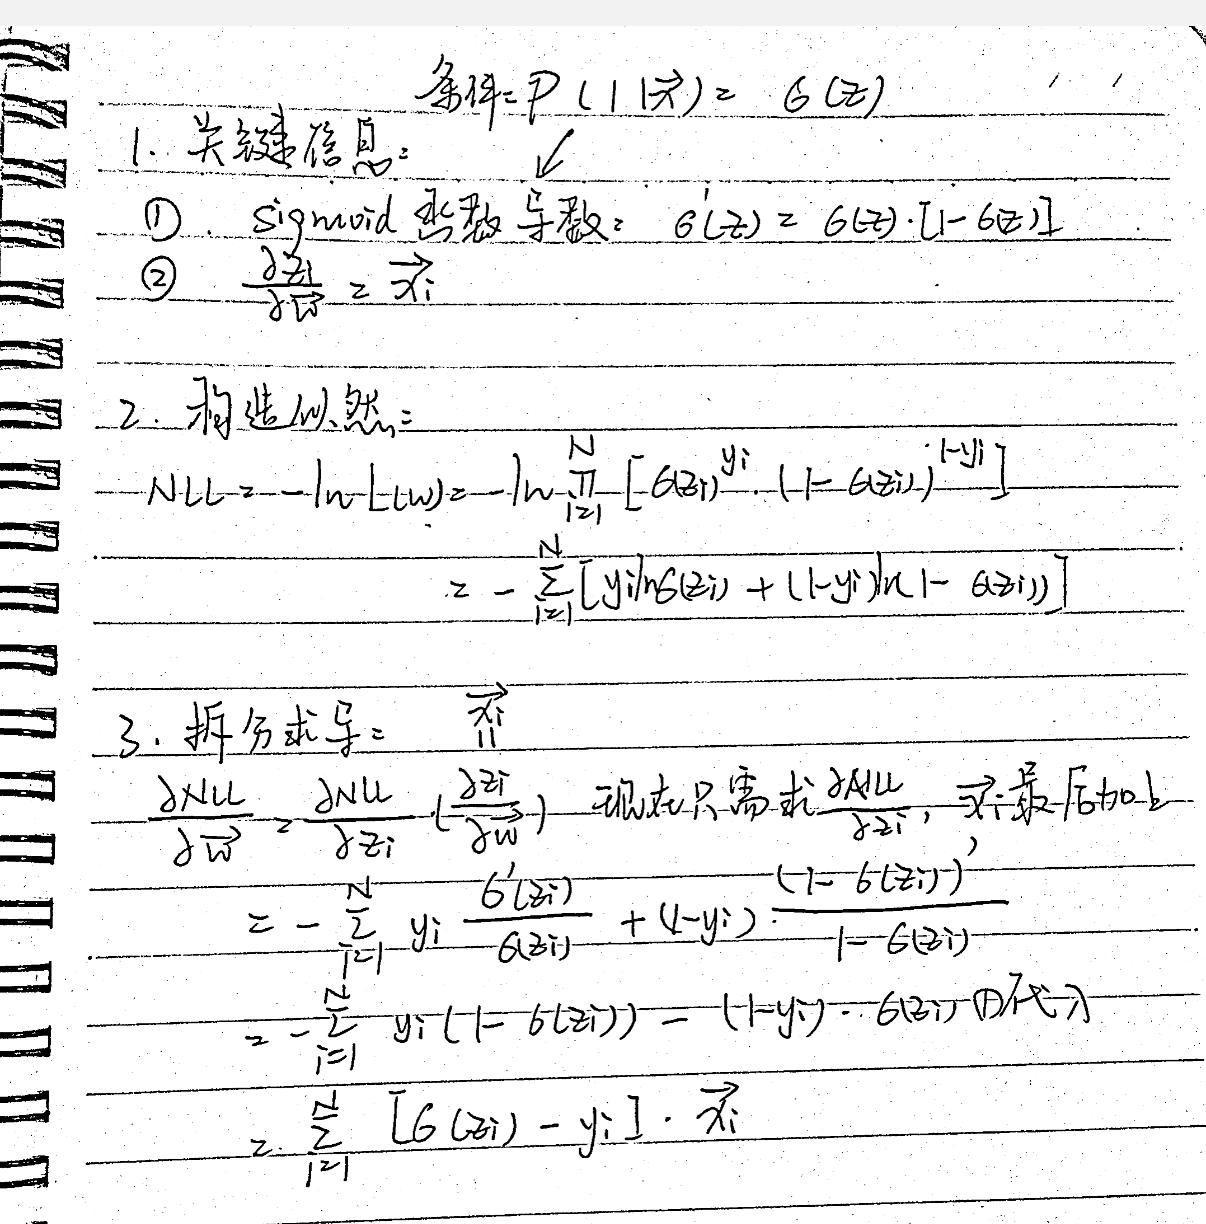 条件: P(1|x⃗) = σ(z)
1. 关键信息:
↙
① . sigmoid 函数导数: σ'(z) = σ(z)·[1-σ(z)]
② ∂zi/∂w⃗ = x⃗i
2. 构造似然:
NLL = -ln L(w) = -ln ∏_{i=1}^{N} [σ(zi)^{yi} · (1-σ(zi))^{1-yi}]
= - ∑_{i=1}^{N} [yi lnσ(zi) + (1-yi)ln 1-σ(zi))]
3. 拆分求导: x⃗i
||
∂NLL/∂w⃗ = ∂NLL/∂zi · (∂zi/∂w⃗) 现在只需求 ∂NLL/∂zi, x⃗i最后加上
= - ∑_{i=1}^{N} yi σ'(zi)/σ(zi) + (1-yi)·(1-σ(zi))'/1-σ(zi)
= - ∑_{i=1}^{N} yi(1-σ(zi)) - (1-yi)·σ(zi) ①代入
= ∑_{i=1}^{N} [σ(zi) - yi]·x⃗i